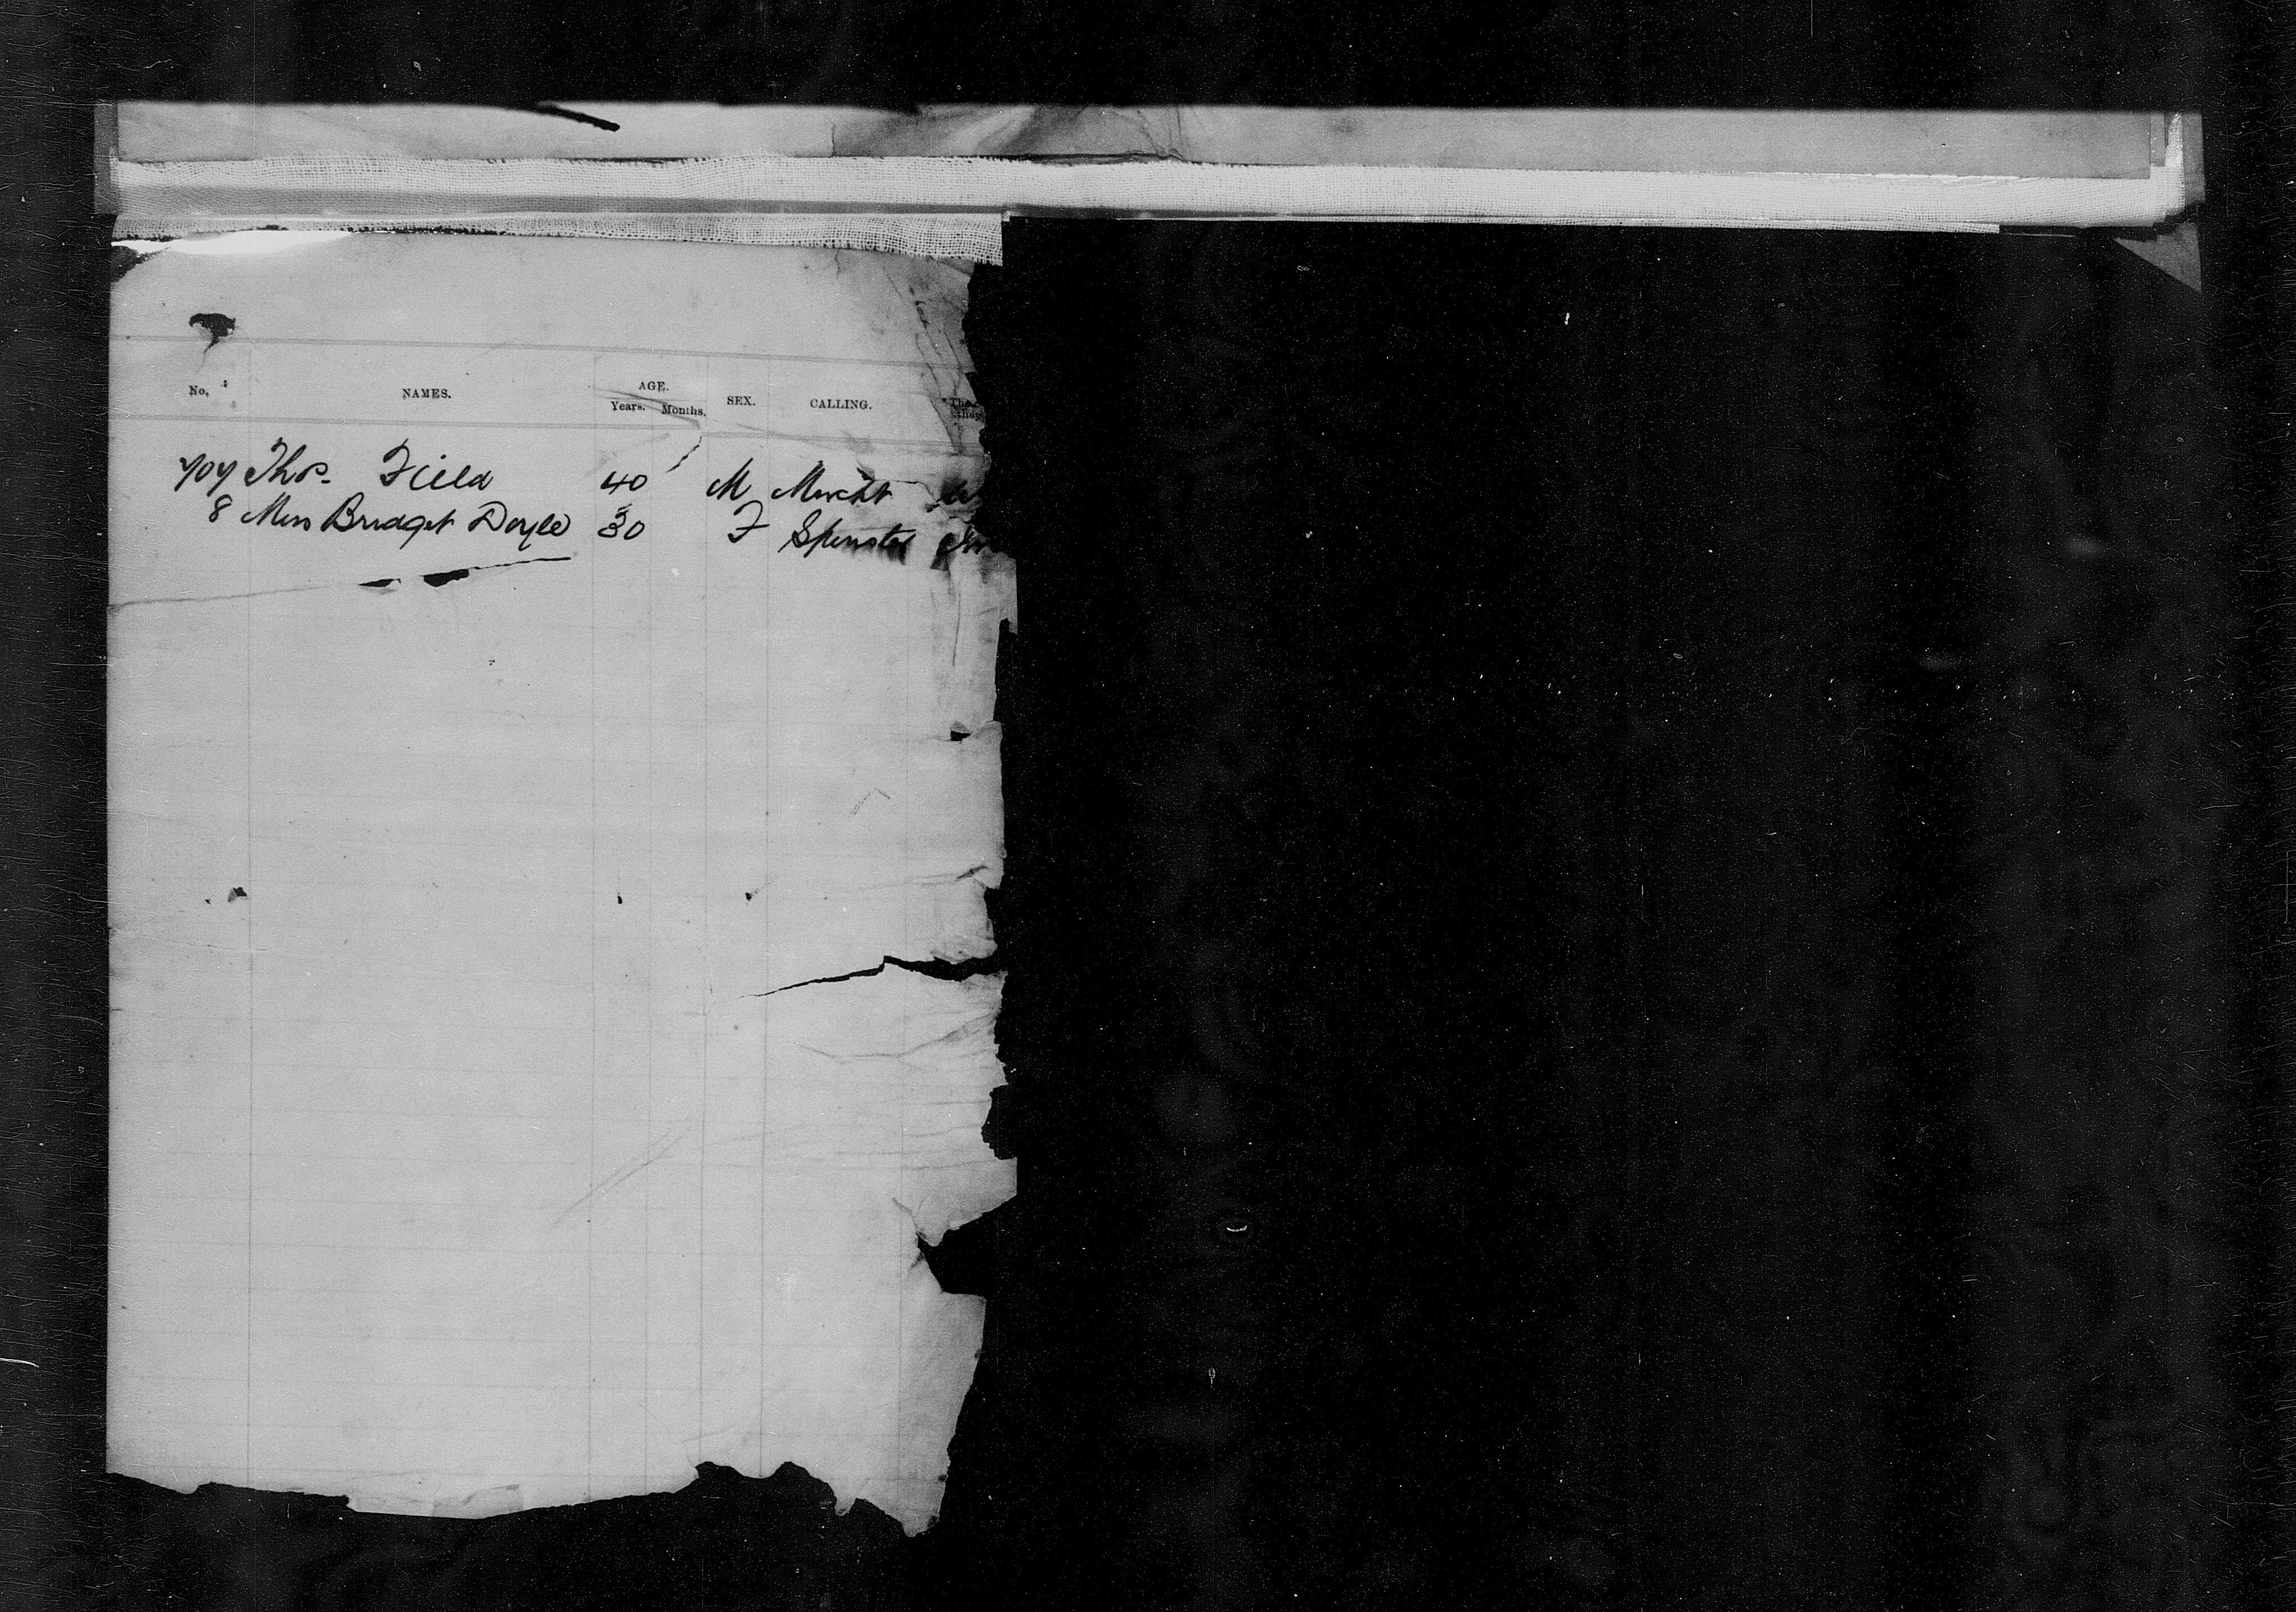 No. NAMES. AGE. SEX. CALLING. The
Years. Months. they
707 Thos. Field 40 M Mercht
8 Miss Bridget Doyle 30 F Spinster